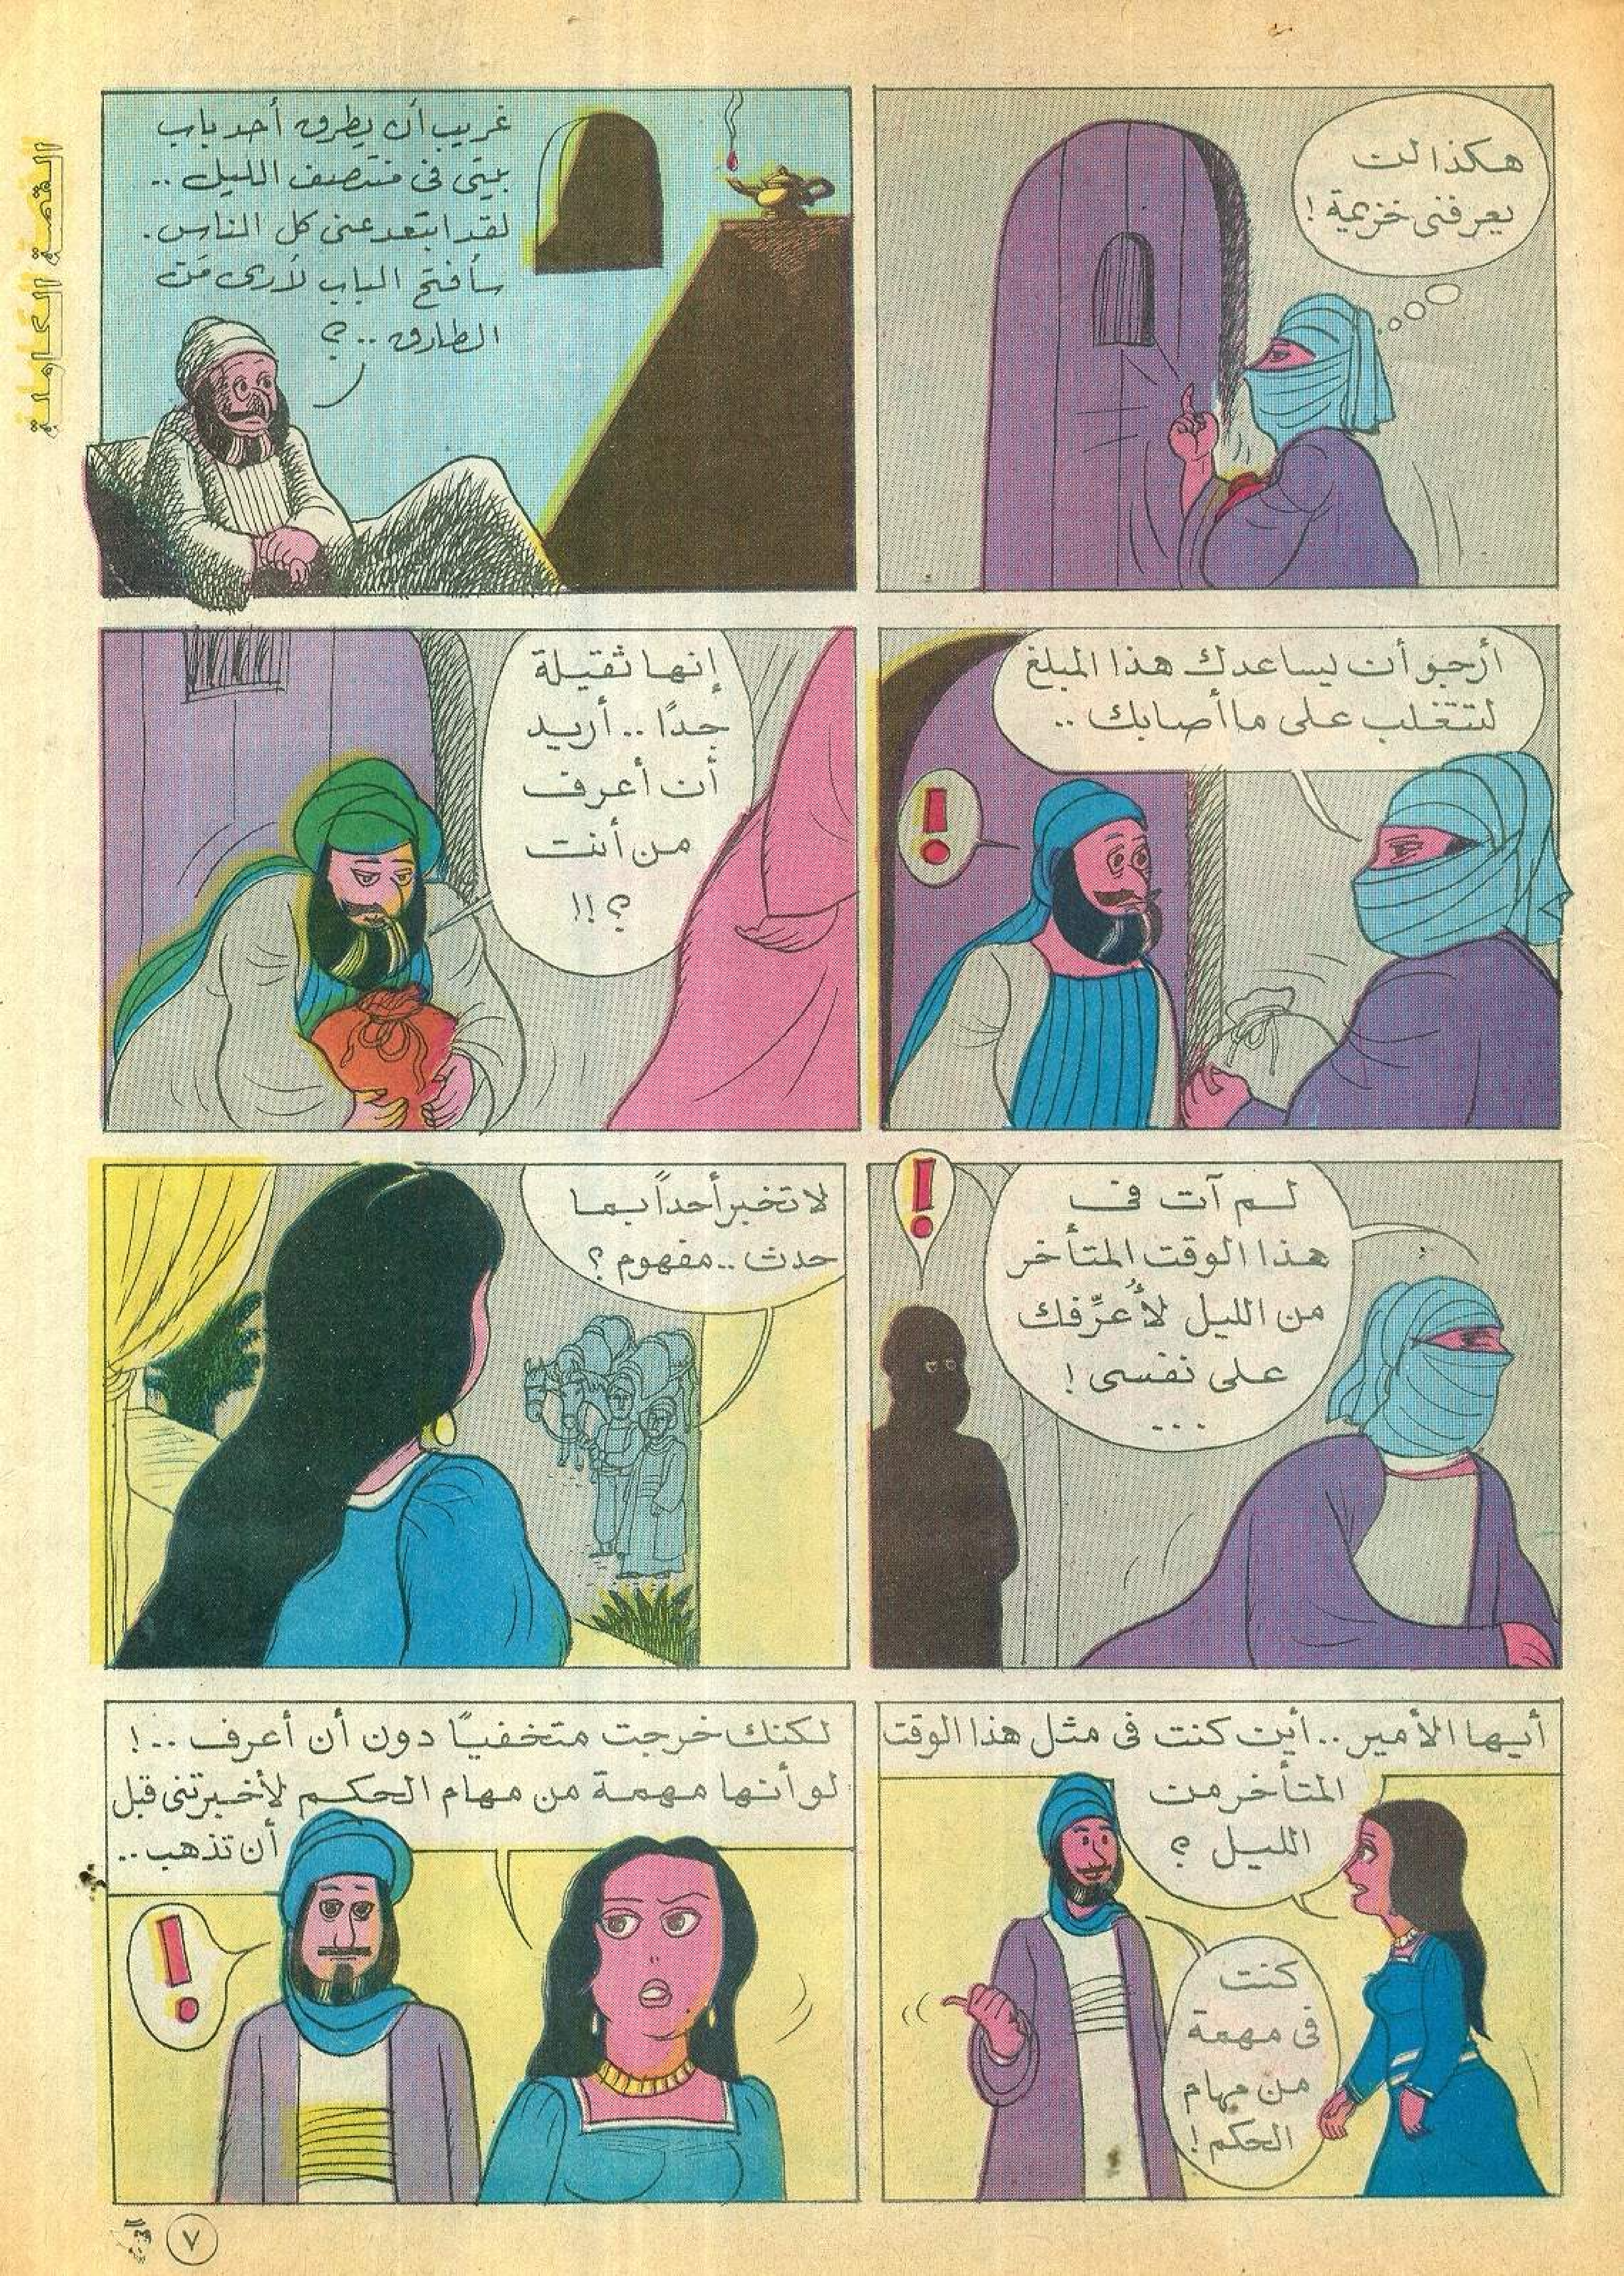 القصة الكاملة
هكذا لن
يعرفنى خزيمة !
غريب أن يطرق أحد باب
بيتى فى منتصف الليل ..
لقد ابتعد عنى كل الناس .
سأفتح الباب لأرى مَن
الطارق .. ؟
أرجو أن يساعدك هذا المبلغ
لتتغلب على ما أصابك ..
!
إنها ثقيلة
جدًا .. أريد
أن أعرف
من أنت
؟ !!
لم آت فى
هذا الوقت المتأخر
من الليل لأُعرِّفك
على نفسى !
...
!
لا تخبر أحداً بما
حدث .. مفهوم ؟
أيها الأمير .. أين كنت فى مثل هذا الوقت
المتأخر من
الليل ؟
كنت
فى مهمة
من مهام
الحكم !
لكنك خرجت متخفيًا دون أن أعرف .. !
لو أنها مهمة من مهام الحكم لأخبرتنى قبل
أن تذهب ..
!
٧